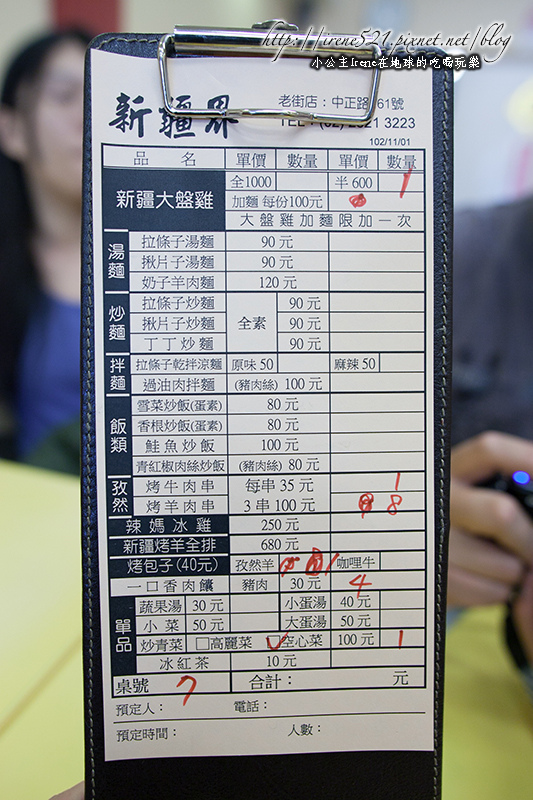 http://irene521.pixnet.net/blog
小公主Irene在地球的吃喝玩樂
新疆界
老街店：中正路 61號
TEL 2921 3223
102/11/01
品 名 單價 數量 單價 數量
新疆大盤雞 全1000 半 600 1
加麵 每份100元
大盤雞加麵限加一次
湯麵
拉條子湯麵 90 元
揪片子湯麵 90 元
奶子羊肉麵 120 元
炒麵
拉條子炒麵 全素 90 元
揪片子炒麵 90 元
丁丁炒麵 90 元
拌麵
拉條子乾拌涼麵 原味 50 麻辣 50
過油肉拌麵 (豬肉絲) 100 元
飯類
雪菜炒飯(蛋素) 80 元
香根炒飯(蛋素) 80 元
鮭魚炒飯 100 元
青紅椒肉絲炒飯 (豬肉絲) 80 元
孜然
烤牛肉串 每串 35 元 1
烤羊肉串 3 串 100 元 8
辣媽冰雞 250 元
新疆烤羊全排 680 元
烤包子 (40元) 孜然羊 1 咖哩牛
一口香肉饢 豬肉 30 元 4
單品
蔬果湯 30 元 小蛋湯 40 元
小菜 50 元 大蛋湯 50 元
炒青菜 □高麗菜 ✓空心菜 100 元 1
冰紅茶 10 元
桌號 7 合計： 元
預定人： 電話：
預定時間： 人數：